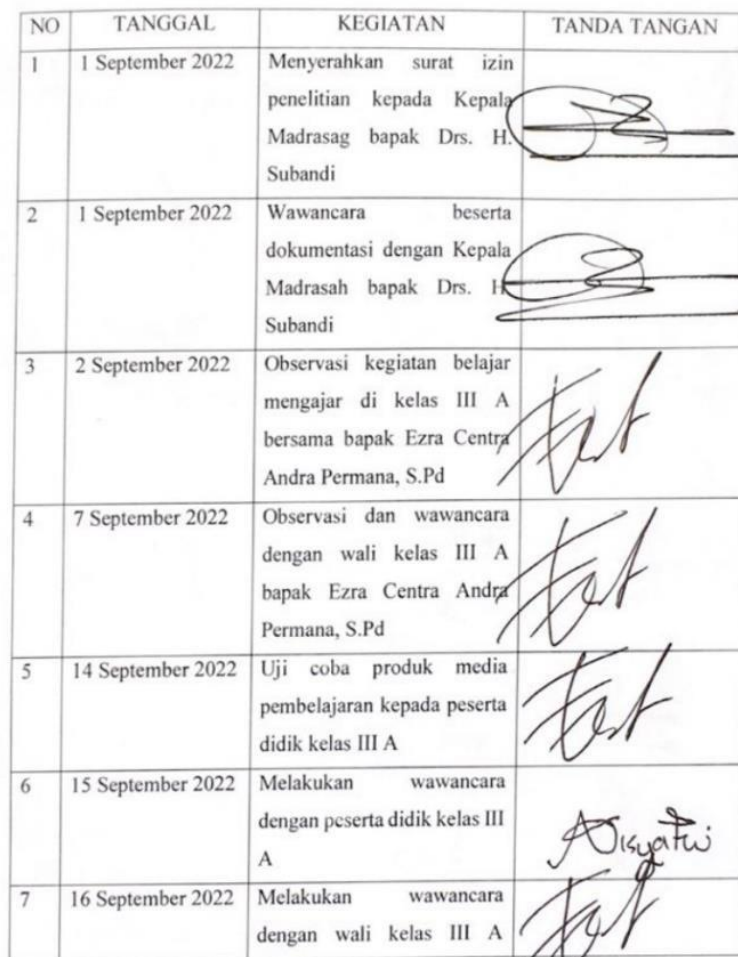 NO TANGGAL KEGIATAN TANDA TANGAN
1 1 September 2022 Menyerahkan surat izin
penelitian kepada Kepala
Madrasag bapak Drs. H.
Subandi
2 1 September 2022 Wawancara beserta
dokumentasi dengan Kepala
Madrasah bapak Drs. H
Subandi
3 2 September 2022 Observasi kegiatan belajar
mengajar di kelas III A
bersama bapak Ezra Centra
Andra Permana, S.Pd
4 7 September 2022 Observasi dan wawancara
dengan wali kelas III A
bapak Ezra Centra Andra
Permana, S.Pd
5 14 September 2022 Uji coba produk media
pembelajaran kepada peserta
didik kelas III A
6 15 September 2022 Melakukan wawancara
dengan peserta didik kelas III
A
7 16 September 2022 Melakukan wawancara
dengan wali kelas III A